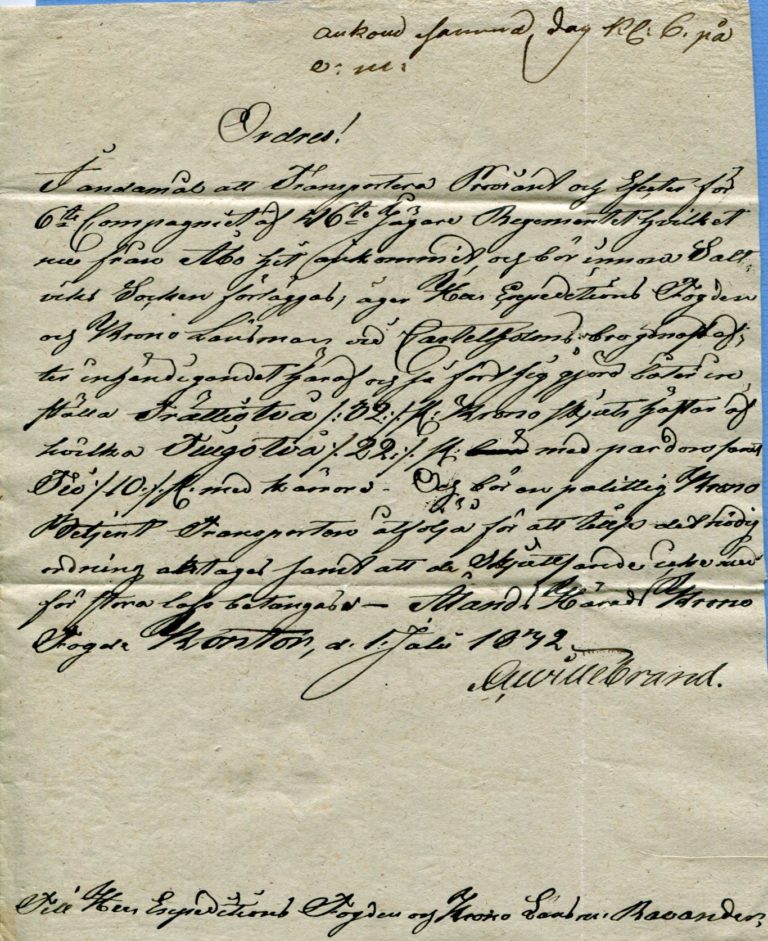 ankom samma dag kl: 6. på
e: m:
Ordres!
I ändamål att Transportera Proviant och Efecter för
6te Compagniet af 46te Jägare Regementet hvilket
nu från Åbo hit ankommit, och bör innom Salt-
viks Socken förläggas, äger Herr Expeditions Fogden
och Krono Länsman vid Castelholms bro genast ef-
ter inhändigandet häraf och så fort sig gjöra låter in-
ställa Trättitvå /:32:/ st: Krono skjuts hästar af
hvilka Tiugotvå /:22:/ st: med pardon samt
Tio /:10:/ st: med kärror. Och bör en pålitlig Krono
Betjent Transporten åtfölja för att tillse det nödig
ordning iakttages samt att de Skjutsande icke med
för stora lass betungas. — Ålands Härads Krono
Fogde Kontor, d. 1. Juli 1842.
Willebrand.
Till Herr Expeditions Fogden och Krono Länsm: Ravander.